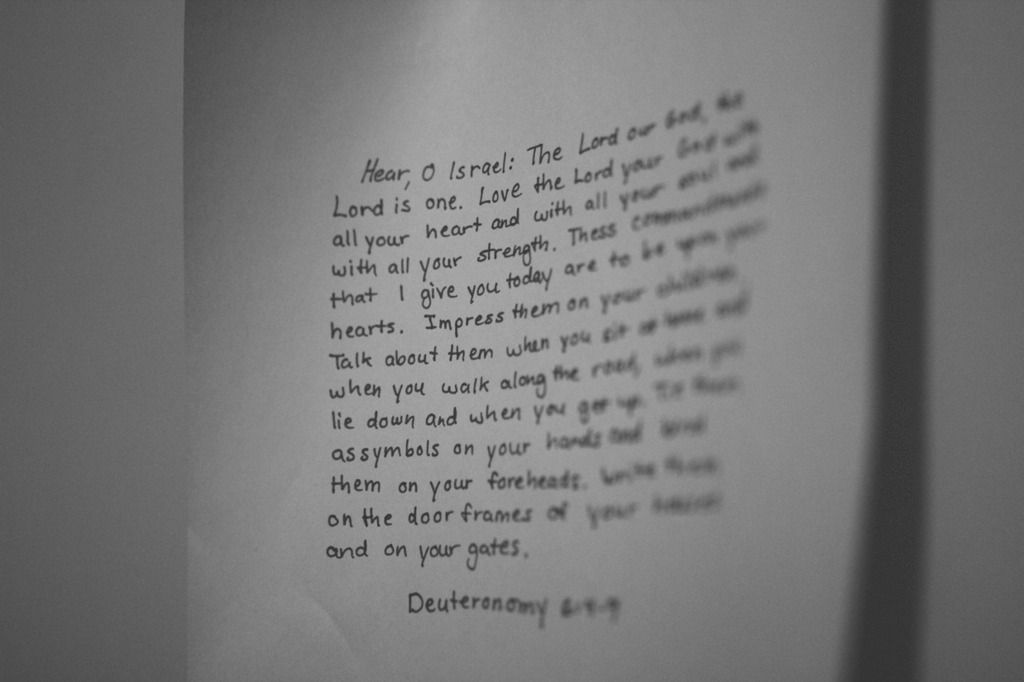 Hear, O Israel: The Lord our God, the
Lord is one. Love the Lord your God with
all your heart and with all your soul and
with all your strength. Thess commandments
that I give you today are to be upon your
hearts. Impress them on your children.
Talk about them when you sit at home and
when you walk along the road, when you
lie down and when you get up. Tie them
as symbols on your hands and bind
them on your foreheads. Write them
on the door frames of your houses
and on your gates.
Deuteronomy 6:4-9